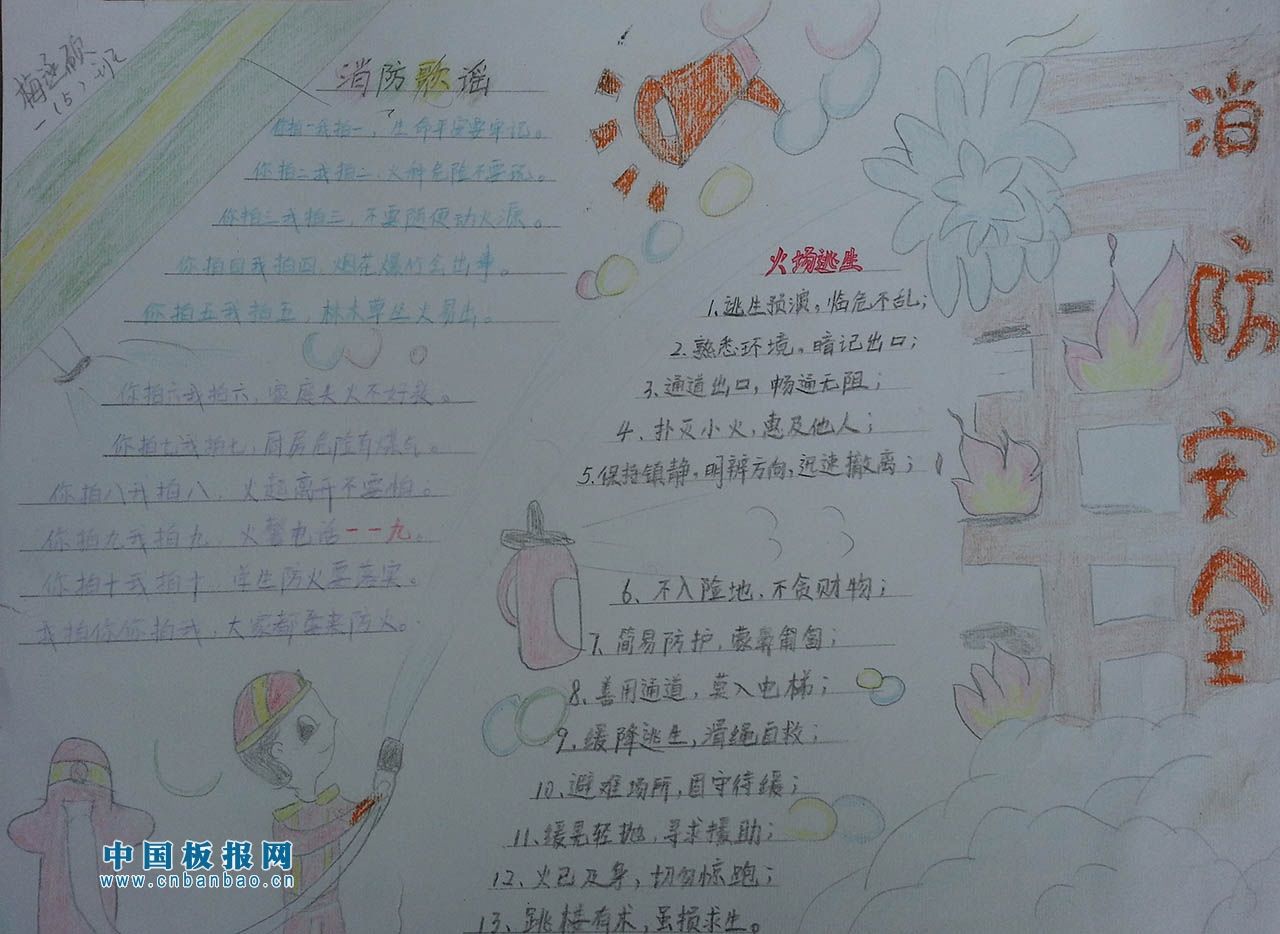 梅延硕
一(5)班
消防歌谣
你拍一我拍一，生命平安要牢记。
你拍二我拍二，火种危险不要玩。
你拍三我拍三，不要随便动火源。
你拍四我拍四，烟花爆竹会出事。
你拍五我拍五，林木草丛火易出。
你拍六我拍六，家庭失火不好救。
你拍七我拍七，厨房危险有煤气。
你拍八我拍八，火起离开不要怕。
你拍九我拍九，火警电话一一九。
你拍十我拍十，学生防火要落实。
我拍你你拍我，大家都要来防火。
火场逃生
1.逃生预演，临危不乱；
2.熟悉环境，暗记出口；
3.通道出口，畅通无阻；
4、扑灭小火，惠及他人；
5.保持镇静，明辨方向，迅速撤离；
6、不入险地、不贪财物；
7、简易防护，蒙鼻匍匐；
8、善用通道，莫入电梯；
9、缓降逃生，滑绳自救；
10、避难场所，固守待缓；
11、缓晃轻抛，寻求援助；
12、火已及身，切勿惊跑；
13、跳楼有术，虽损求生。
消防安全
中国板报网
www.cnbanbao.cn